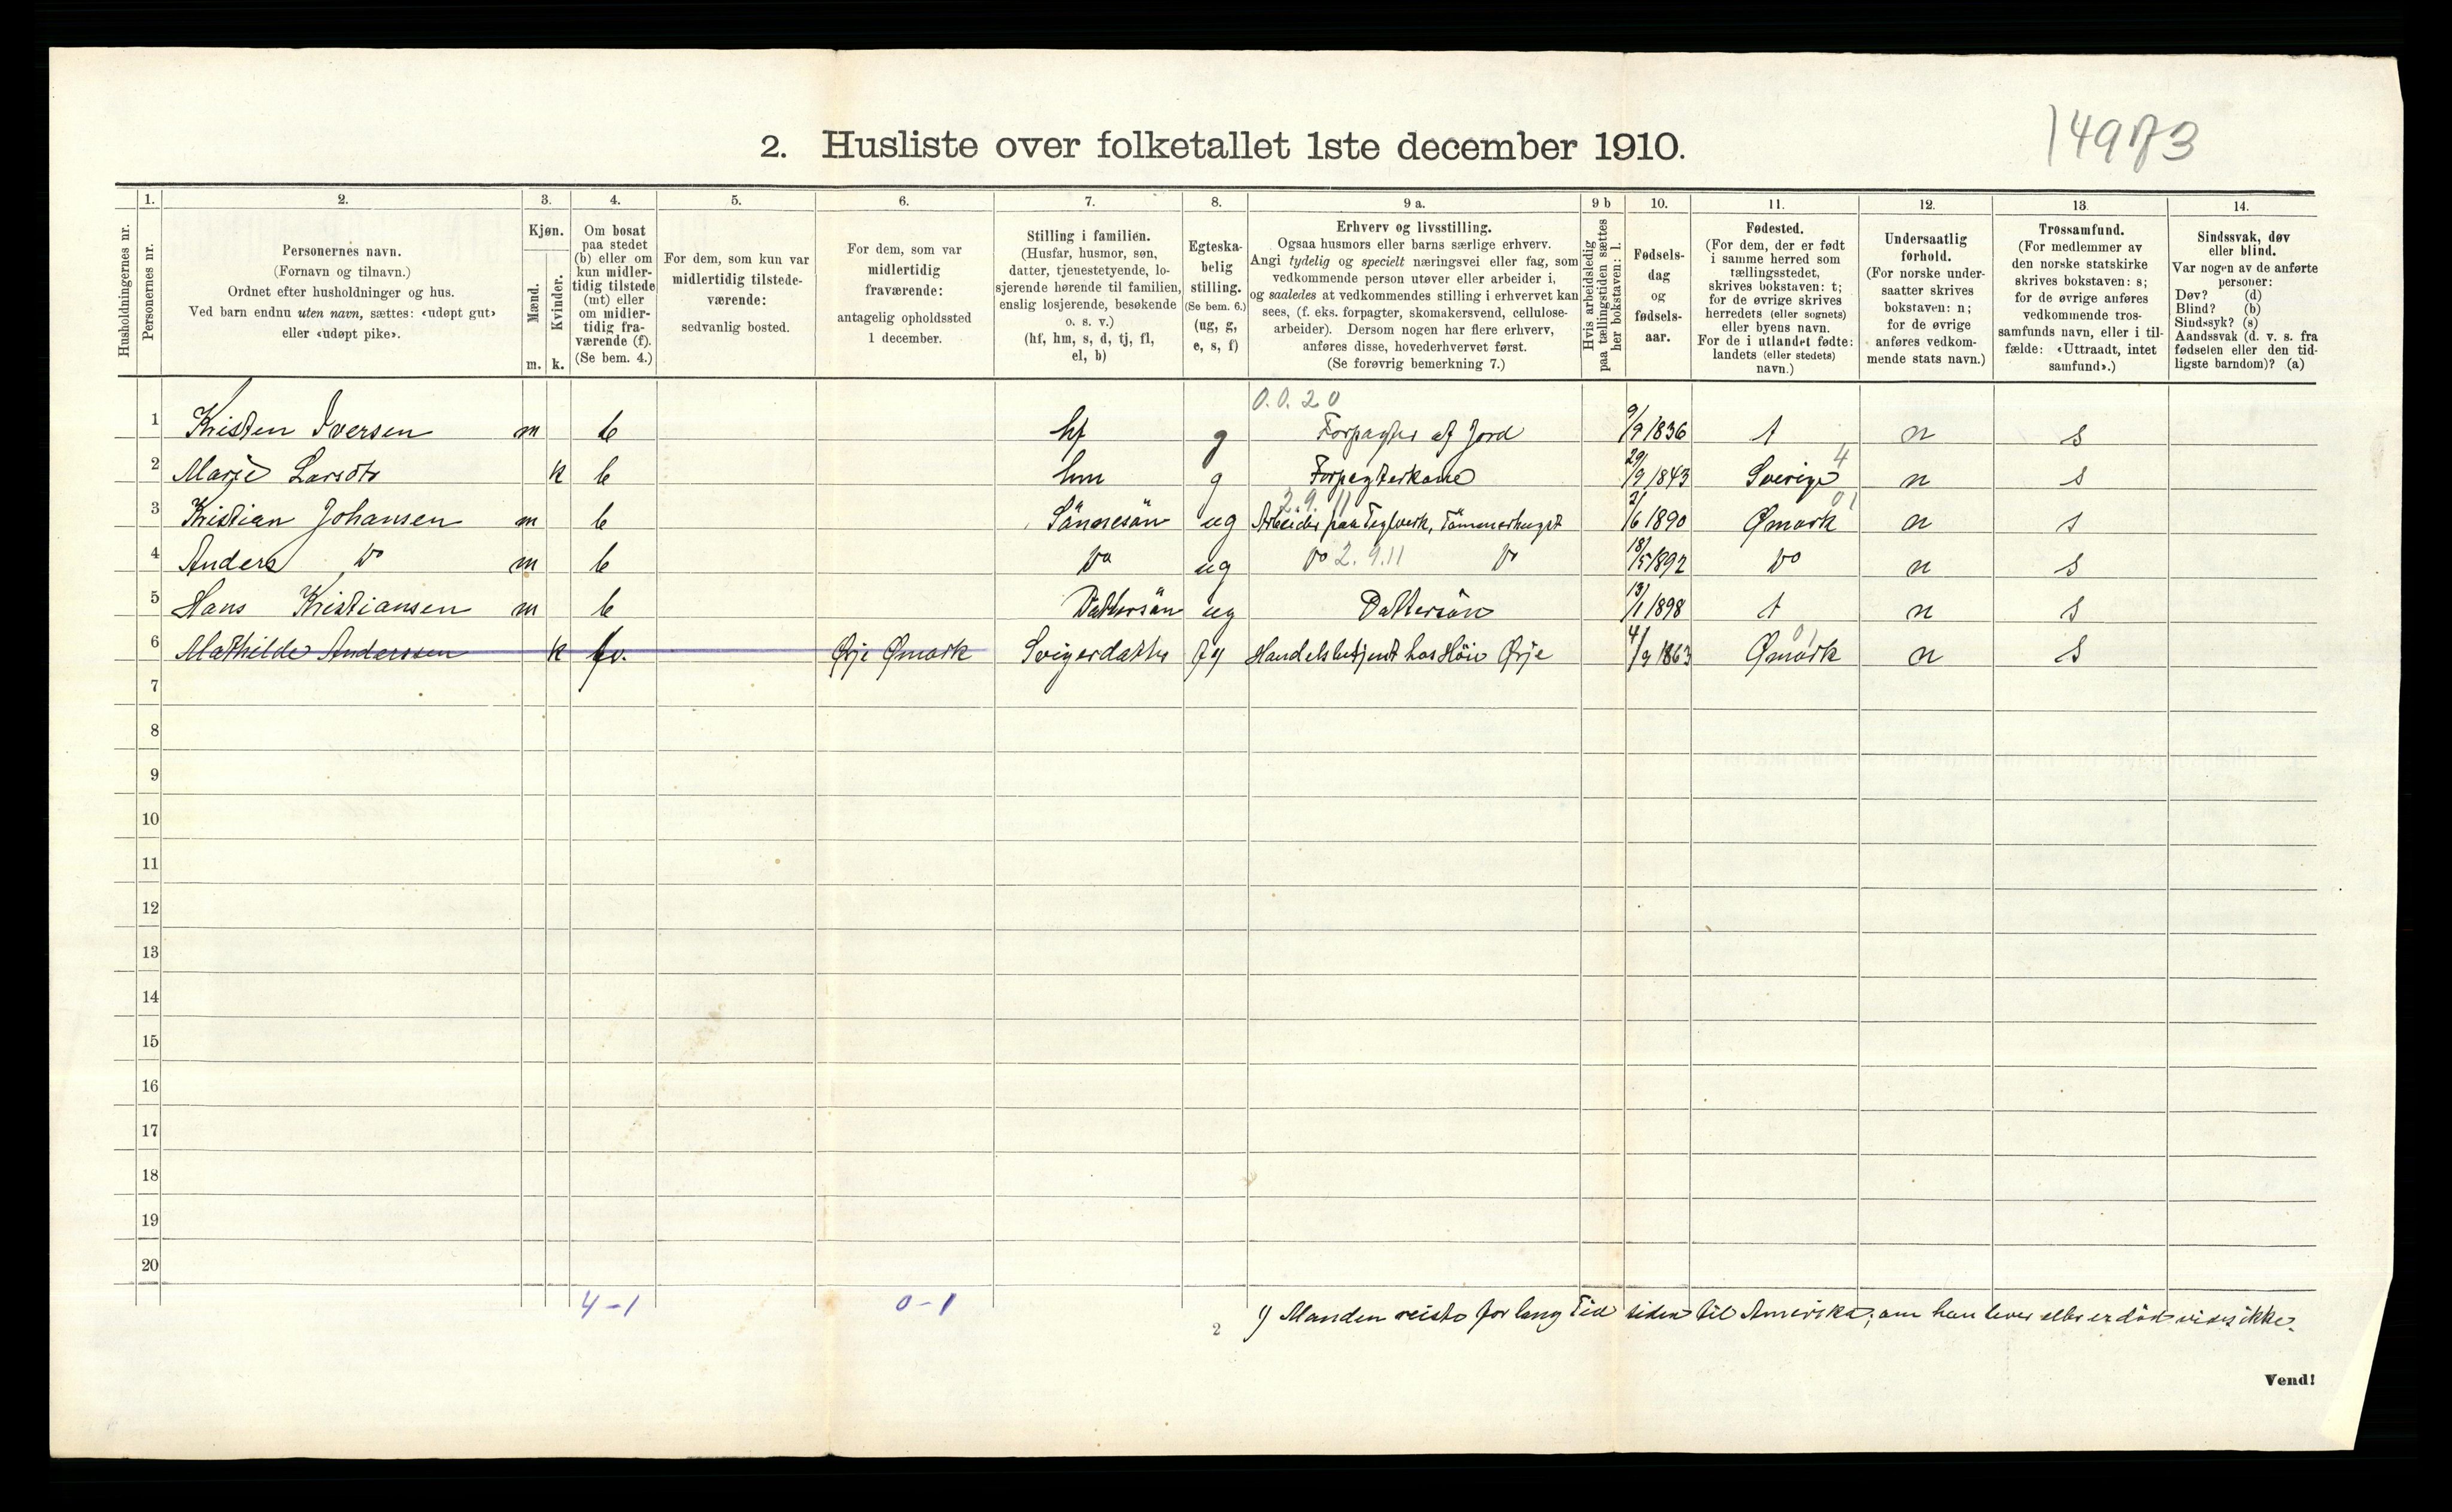 14973
2. Husliste over folketallet 1ste december 1910.
1. 2. 3. 4. 5. 6. 7. 8. 9 a. 9 b 10. 11. 12. 13. 14.
Husholdningernes nr.
Personernes nr.
Personernes navn.
(Fornavn og tilnavn.)
Ordnet efter husholdninger og hus.
Ved barn endnu uten navn, sættes: «udøpt gut»
eller «udøpt pike».
Kjøn.
Mænd.
Kvinder.
m. k.
Om bosat
paa stedet
(b) eller om
kun midler-
tidig tilstede
(mt) eller
om midler-
tidig fra-
værende (f).
(Se bem. 4.)
For dem, som kun var
midlertidig tilstede-
værende:
sedvanlig bosted.
For dem, som var
midlertidig
fraværende:
antagelig opholdssted
1 december.
Stilling i familien.
(Husfar, husmor, søn,
datter, tjenestetyende, lo-
sjerende hørende til familien,
enslig losjerende, besøkende
o. s. v.)
(hf, hm, s, d, tj, fl,
el, b)
Egteska-
belig
stilling.
(Se bem. 6.)
(ug, g,
e, s, f)
Erhverv og livsstilling.
Ogsaa husmors eller barns særlige erhverv.
Angi tydelig og specielt næringsvei eller fag, som
vedkommende person utøver eller arbeider i,
og saaledes at vedkommendes stilling i erhvervet kan
sees, (f. eks. forpagter, skomakersvend, cellulose-
arbeider). Dersom nogen har flere erhverv,
anføres disse, hovederhvervet først.
(Se forøvrig bemerkning 7.)
Hvis arbeidsledig
paa tællingstiden sættes
her bokstaven: l.
Fødsels-
dag
og
fødsels-
aar.
Fødested.
(For dem, der er født
i samme herred som
tællingsstedet,
skrives bokstaven: t;
for de øvrige skrives
herredets (eller sognets)
eller byens navn.
For de i utlandet fødte:
landets (eller stedets)
navn.)
Undersaatlig
forhold.
(For norske under-
saatter skrives
bokstaven: n;
for de øvrige
anføres vedkom-
mende stats navn.)
Trossamfund.
(For medlemmer av
den norske statskirke
skrives bokstaven: s;
for de øvrige anføres
vedkommende tros-
samfunds navn, eller i til-
fælde: «Uttraadt, intet
samfund».)
Sindssvak, døv
eller blind.
Var nogen av de anførte
personer:
Døv? (d)
Blind? (b)
Sindssyk? (s)
Aandssvak (d. v. s. fra
fødselen eller den tid-
ligste barndom)? (a)
0.0.20
1 Kristen Iversen m b hf g Forpagter af Jord 9/9 1836 t n s
4
2 Marje Larsdtr k b hm g Forpagterkone 29/9 1843 Sverige n s
2.9.11 01
3 Kristian Johansen m b Sønnesøn ug Arbeider paa Teglverk, Tømmerhugst 21/6 1890 Ømark n s
4 Anders Do m b Do ug Do 2.9.11 Do 18/5 1892 Do n s
5 Hans Kristiansen m b Dattersøn ug Dattersøn 13/1 1898 t n s
6 Mathilde Anderssen k fv. Ørje Ømark Svigerdatter Handelsbetjent hos Høie Ørje 4/9 1863 Ømark n s
7
8
9
10
11
12
13
14
15
16
17
18
19
20
4-1 0-1
1) Manden reiste for lang Tid siden til Amerika; om han lever eller er død vides ikke.
2
Vend!